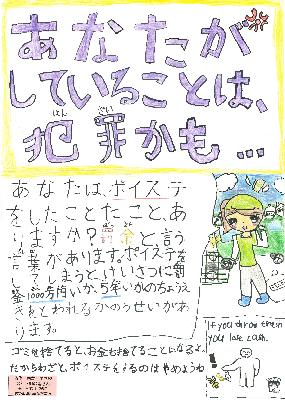 あなたが
していることは、
犯罪かも...
はん ざい
あなたは、ポイステ
をしたことた、こと、あ
りますか?罰金と、言う
言葉があります。ポイステを
してしまうと、けいさつに罰
金1000万円いか、5年いかのちょうえ
きをとわれるかのうせいがあ
ります。
ゴミを捨てると、お金も捨てることになると
だからわざと、ポイステをするのはやめようね
If you throw them
you lose cash.